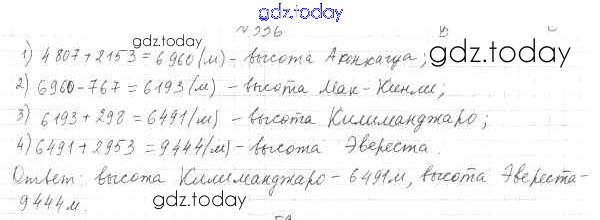 gdz.today
№ 336
gdz.today
1) 4807+2153=6960(м) - высота Аконкагуа;
gdz.today
2) 6960-767=6193(м) - высота Мак-Кинли;
3) 6193+298=6491(м) - высота Килиманджаро;
4) 6491+2953=9444(м) - высота Эвереста.
Ответ: высота Килиманджаро - 6491м, высота Эвереста-
9444м.
gdz.today